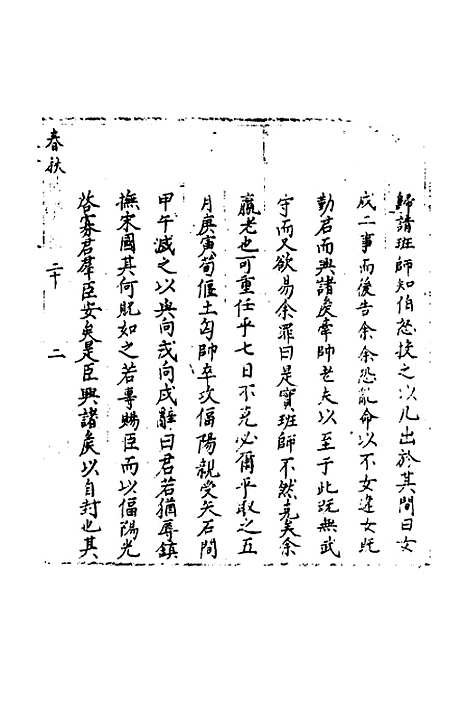 歸請班師知伯怒投之以几出於其間曰女
成二事而後告余余恐亂命以不女違女既
勤君而興諸矦牽帥老夫以至于此既無武
守而又欲易余罪曰是實班師不然克矣余
羸老也可重任乎七日不克必爾乎取之五
月庚寅荀偃士匄帥卒攻偪陽親受矢石間
甲午滅之以與向戌向戌辭曰君若猶辱鎮
撫宋國其何貺如之若專賜臣而以偪陽光
啓寡君羣臣安矣是臣興諸矦以自封也其
春秋 二十 二